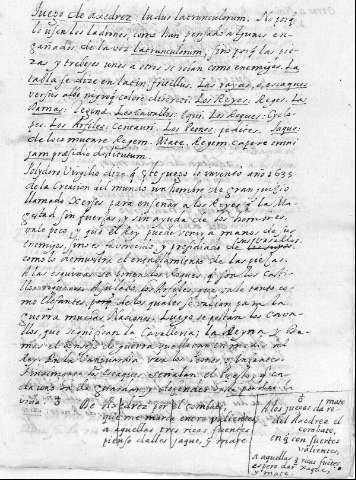 Juego de axedrez. ludus latrunculorum. No porq̃
le usen los ladrones, como han pensado algunos en
gañados de la voz latrunculorum, sino porq̃ las pie
zas y treveles unos a otros se tiran como enemigos. La
tabla se dize en latin fritillus. Las rayas,
versus albo nigroq̃ colore discreti. Los Reyes: Reges. La
Damas: Los Cavallos: Equi. Los Roques: Cyclo
pes. Los Arfiles: Centauri. Los Peones: pedites. Jaque:
de loco movere Regem. Mate. Regem capere omni
jam præsidio destitutum.
Polydoro Virgilio dize q̃ este juego se invento año 1635
de la Creacion del mundo un hombre de gran juyzio
llamado Xerses para enseñar a los Reyes q̃ la Ma
gestad sin fuerzas, y sin ayuda de los hombres,
vale poco, y que el Rey puede venir a manos de sus
enemigos, si no es favorecido, y presidiado de sus vasallos
como lo demuestra el entablamiento de las piezas.
A las esquinas se ponen los Roques q̃ son los Casti
llos A su lado los Arfiles, que vale tanto co
mo Elefantes, de los quales se valian para la
guerra muchas Naciones. Luego se siguen los Cava
llos, que significan la Cavalleria; la Reyna y Da
mas el Consejo de guerra
Rey. En la Vanguardia van los Peones, y Infantes.
cada uno ha de guardar y defender hasta perder la
vida
De Axedrez por el combate,
que me marca enero valientes
a aquellas tres ricas fuertes
pienso dalles jaque, y mate
A los juegos de
del Axedrez el
combate,
en q̃ con fuertes
valientes,
a aquellas ricas fuertes
espero dar xaque,
y mate.